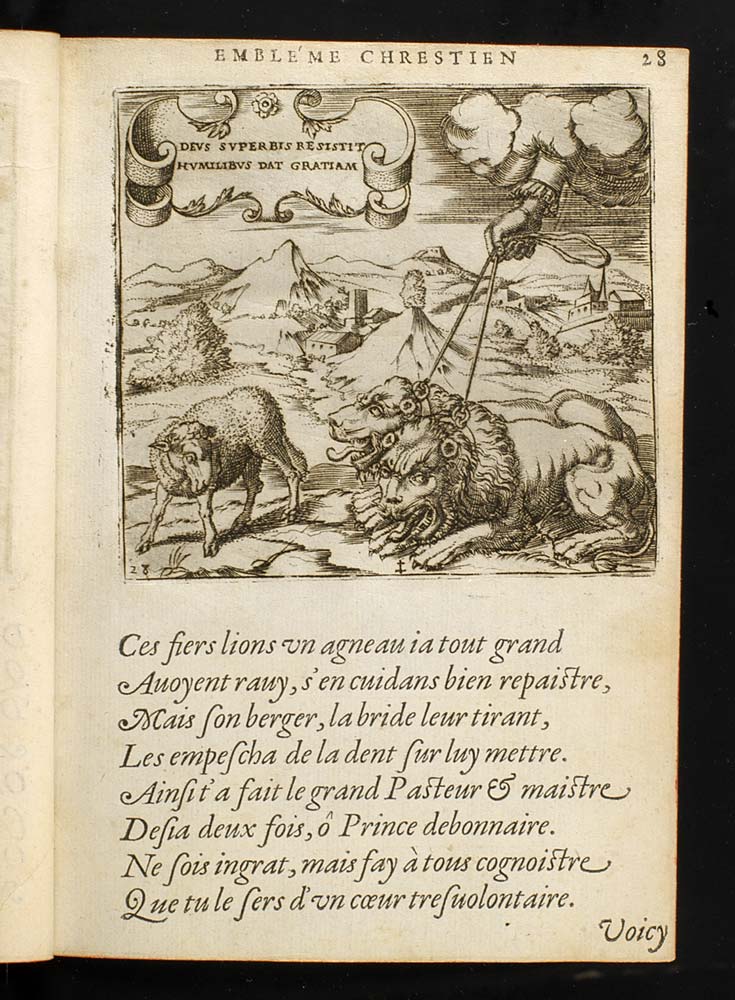 EMBLÉME CHRESTIEN 28
DEVS SVPERBIS RESISTIT
HVMILIBVS DAT GRATIAM
28
Ces fiers lions vn agneau ia tout grand
Auoyent rauy, s'en cuidans bien repaiſtre,
Mais ſon berger, la bride leur tirant,
Les empeſcha de la dent ſur luy mettre.
Ainſi t'a fait le grand Paſteur & maiſtre
Deſia deux fois, ô Prince debonnaire.
Ne ſois ingrat, mais fay à tous cognoiſtre
Que tu le ſers d'vn cœur treſuolontaire.
Voicy